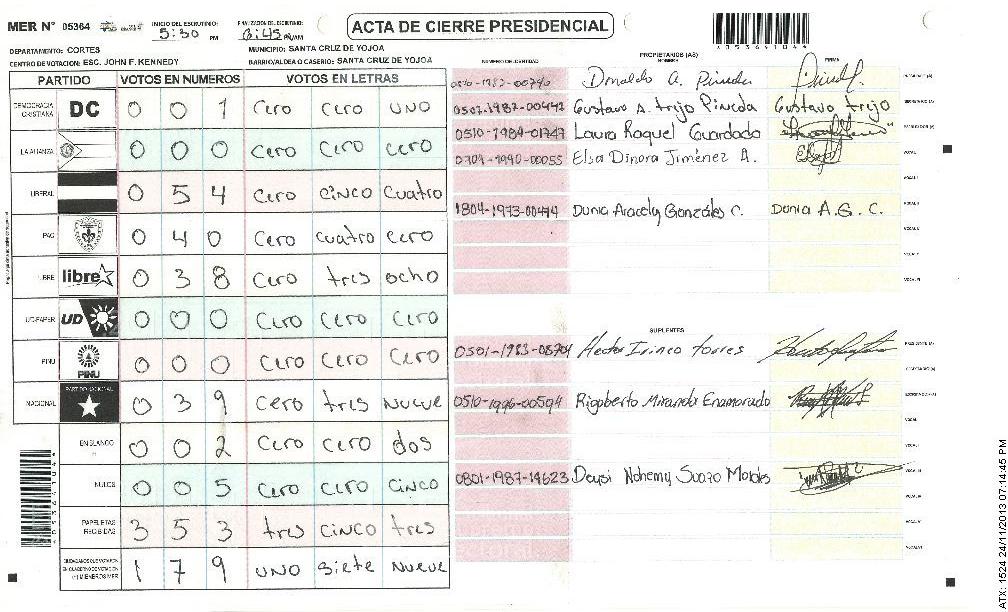 MER N° 05364
INICIO DEL ESCRUTINIO: 5:30 PM
FINALIZACION DEL ESCRUTINIO: 6:45 PM/AM
ACTA DE CIERRE PRESIDENCIAL
DEPARTAMENTO: CORTES
MUNICIPIO: SANTA CRUZ DE YOJOA
CENTRO DE VOTACION: ESC. JOHN F. KENNEDY
BARRIO/ALDEA O CASERIO: SANTA CRUZ DE YOJOA
PARTIDO VOTOS EN NUMEROS VOTOS EN LETRAS
DEMOCRACIA CRISTIANA DC 0 0 1 Cero Cero uno
LA ALIANZA 0 0 0 Cero Cero Cero
LIBERAL 0 5 4 Cero cinco cuatro
PAC 0 4 0 Cero cuatro cero
LIBRE libre 0 3 8 Cero tres ocho
UD-FAPER UD 0 0 0 Cero Cero Cero
PINU PINU 0 0 0 Cero Cero Cero
NACIONAL PARTIDO NACIONAL 0 3 9 Cero tres nueve
EN BLANCO 0 0 2 Cero cero dos
NULOS 0 0 5 Cero Cero Cinco
PAPELETAS RECIBIDAS 3 5 3 tres cinco tres
CIUDADANOS QUE VOTARON EN CUADERNO DE VOTACION (+) MIEMBROS MER 1 7 9 uno siete nueve
NUMERO DE IDENTIDAD PROPIETARIOS (AS) NOMBRE FIRMA
Donaldo A. Pineda PRESIDENTE (A)
0507-1982-00442 Gustavo A. trijo Pineda Gustavo trijo SECRETARIO (A)
0510-1984-01747 Laura Raquel Guardado ESCRUTADOR (A)
0704-1990-00055 Elsa Dinora Jiménez A. VOCAL I
VOCAL II
1804-1973-00474 Dunia Aracely Gonzáles C. Dunia A.G.C.
SUPLENTES
0501-1983-08704 Hector Irineo torres PRESIDENTE (A)
SECRETARIO (A)
0510-1996-00594 Rigoberto Miranda Enamorado ESCRUTADOR (A)
VOCAL I
0801-1987-14623 Deysi Nohemy Suazo Morales
A053641044
ATX: 1524 24/11/2013 07:14:45 PM